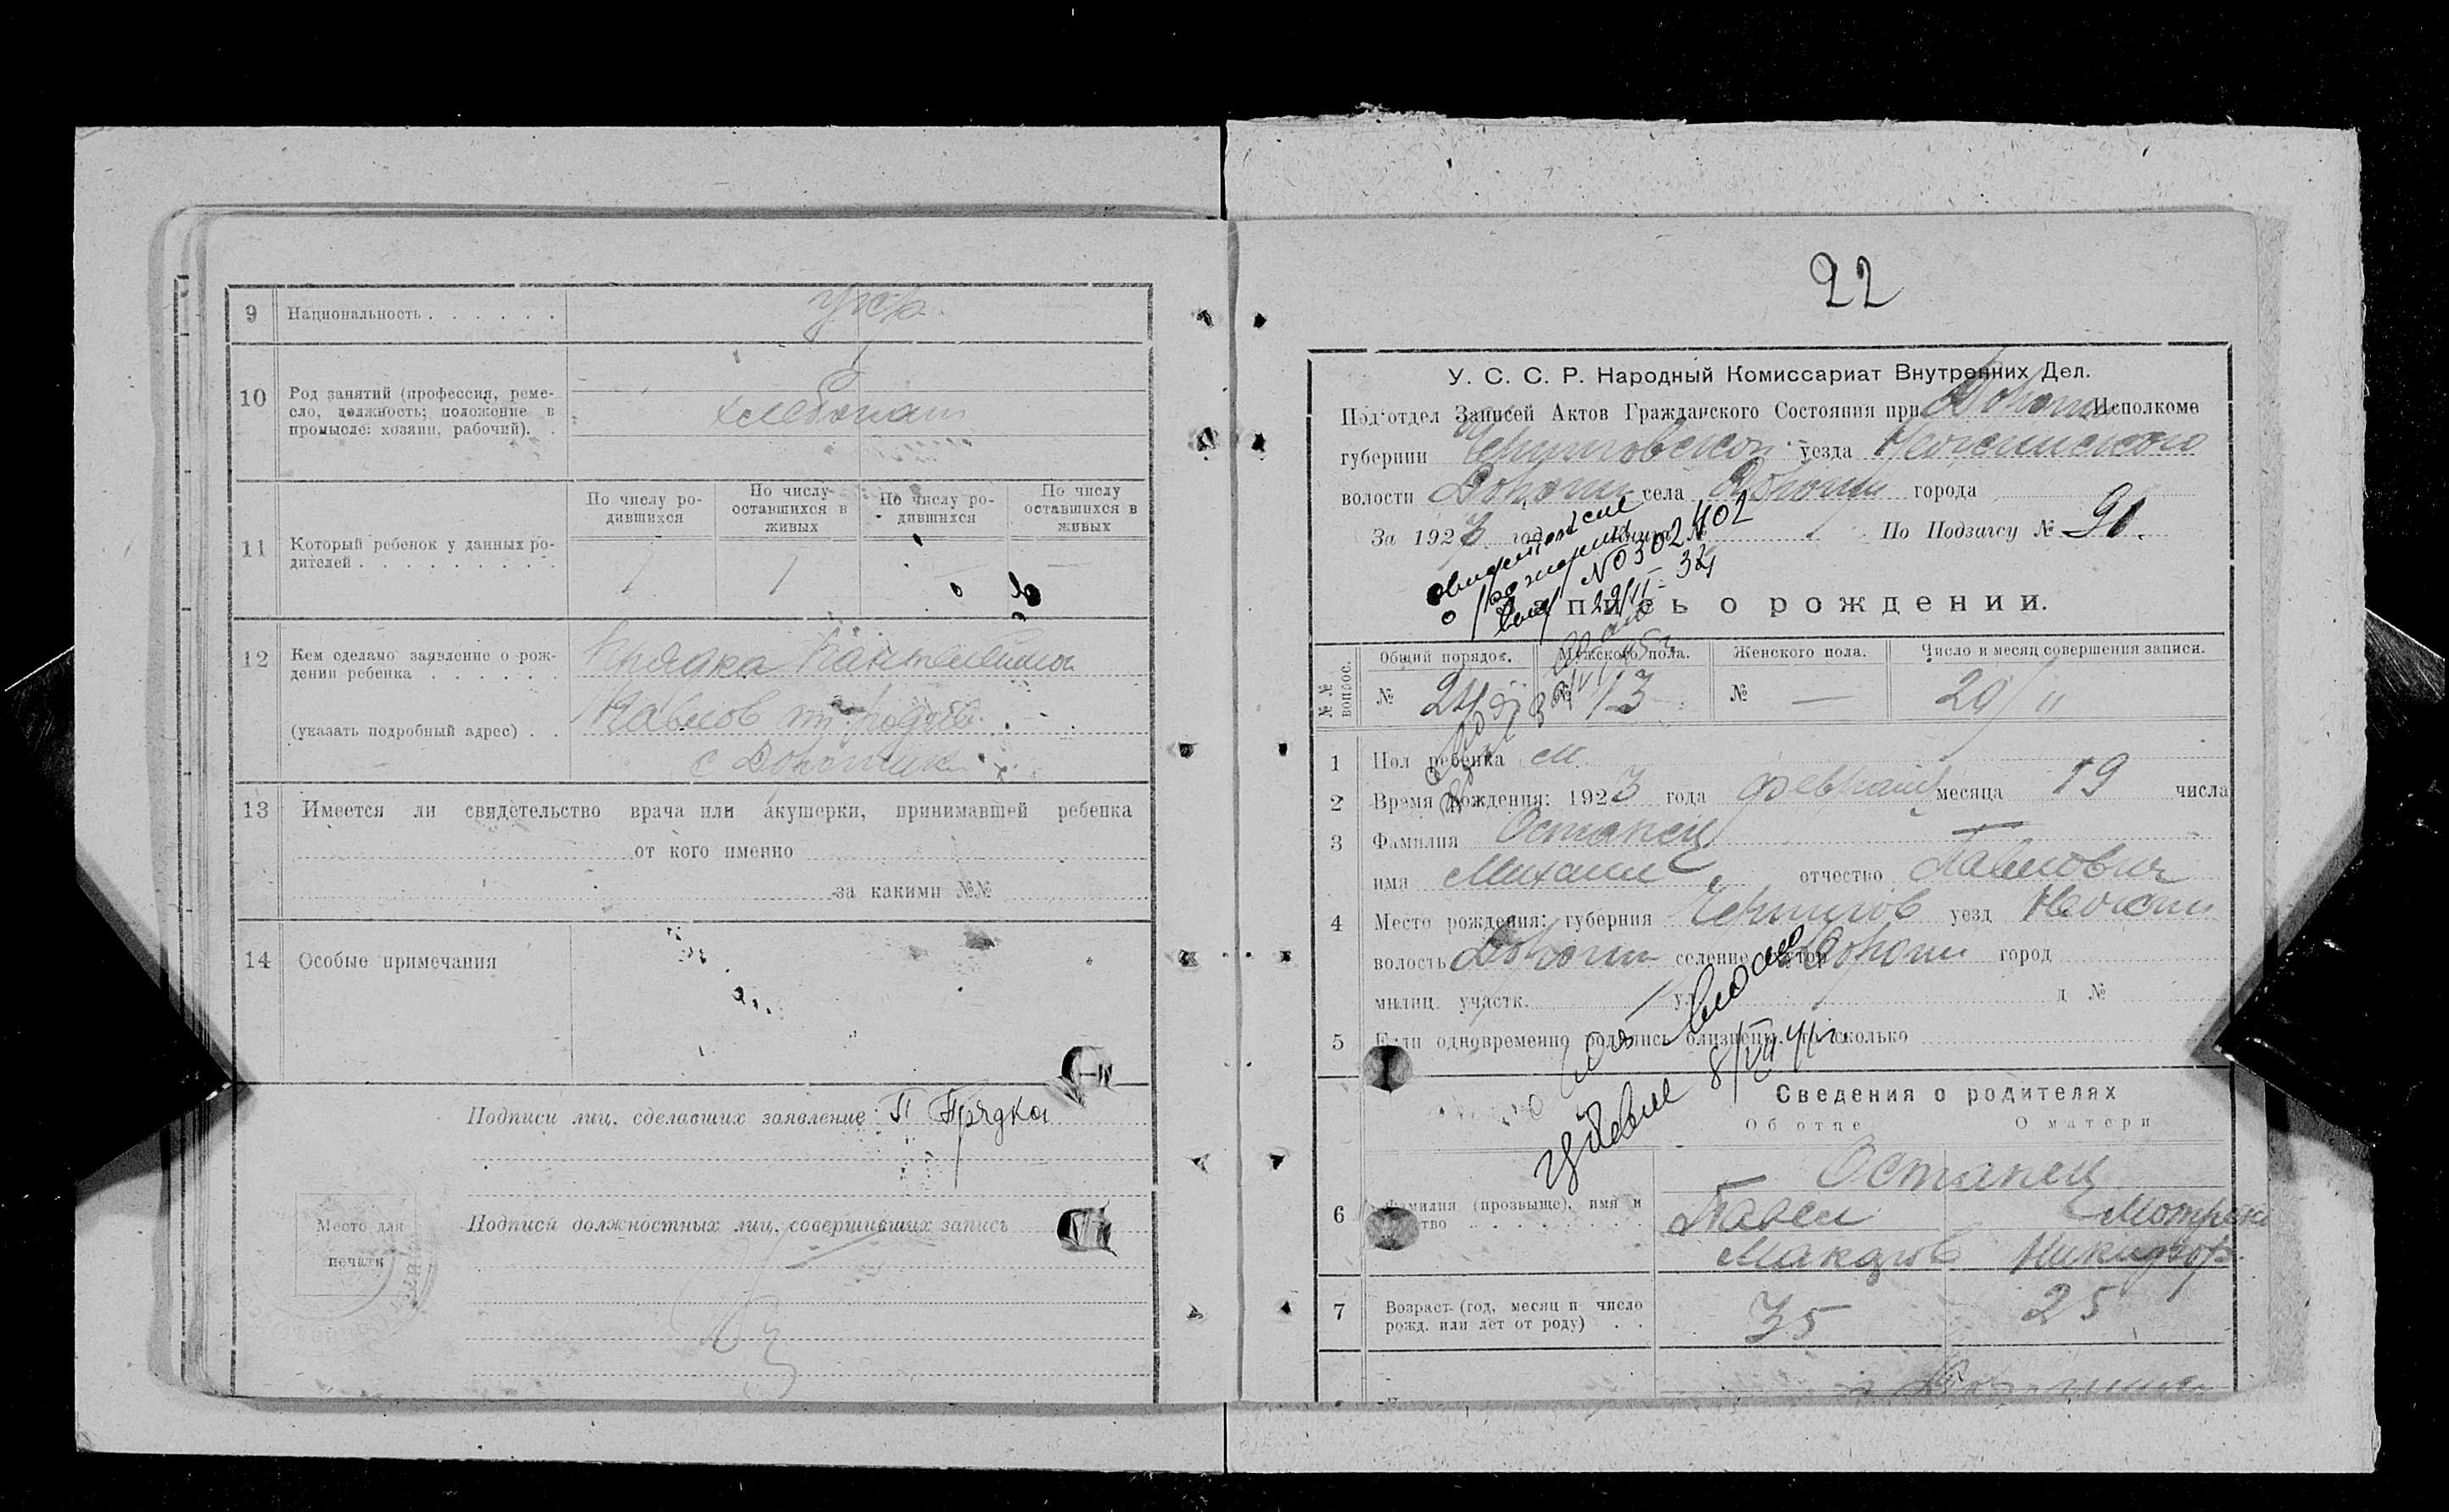 9 Национальность укр.
10 Род занятий (профессия, реме-
сло, должность; положение в
промысле: хозяин, рабочий).
хлебопаш
По числу ро-
дившихся
По числу
оставшихся в
живых
По числу ро-
дившихся
По числу
оставшихся в
живых
11 Который ребенок у данных ро-
дителей 1 1 — —
12 Кем сделано заявление о рож-
дении ребенка Прядка Пантелеймон
(указать подробный адрес) Павлов
с
13 Имеется ли свидетельство врача или акушерки, принимавшей ребенка
от кого именно
за какими №№
14 Особые примечания
Подписи лиц, сделавших заявление: П Прядка
Место для
печати
Подписи должностных лиц, совершивших запись
22
У. С. С. Р. Народный Комиссариат Внутренних Дел.
Под'отдел Записей Актов Гражданского Состояния при Дорогин Исполкоме
губернии Черниговской уезда Нежинского
волости Дорогин села Дорогин города
За 1923 год Книга № По Подзагсу № 91.
свидетельство
о рождении
выд № 0302402
29/II - 34
Запись о рождении.
№№ вопрос.
Общий порядок. Мужского пола. Женского пола. Число и месяц совершения записи.
№ 24 № 13 № — 29/II
1 Пол ребенка м.
2 Время рождения: 1923 года февраля месяца 19 числа
3 Фамилия Остапец
имя Михаил отчество Павлович
4 Место рождения: губерния Чернигов уезд Нежин
волость Дорогин селение хутор Дорогин город
милиц. участк. ул. д №
5 Если одновременно родились близнецы, то сколько
выдано
8/VII 41 г.
Сведения о родителях
Об отце О матери
6 Фамилия (прозвыще), имя и
отчество
Остапец
Павел Мотрена
Макаров Никифор.
7 Возраст (год, месяц и число
рожд. или лет от роду) 35 25